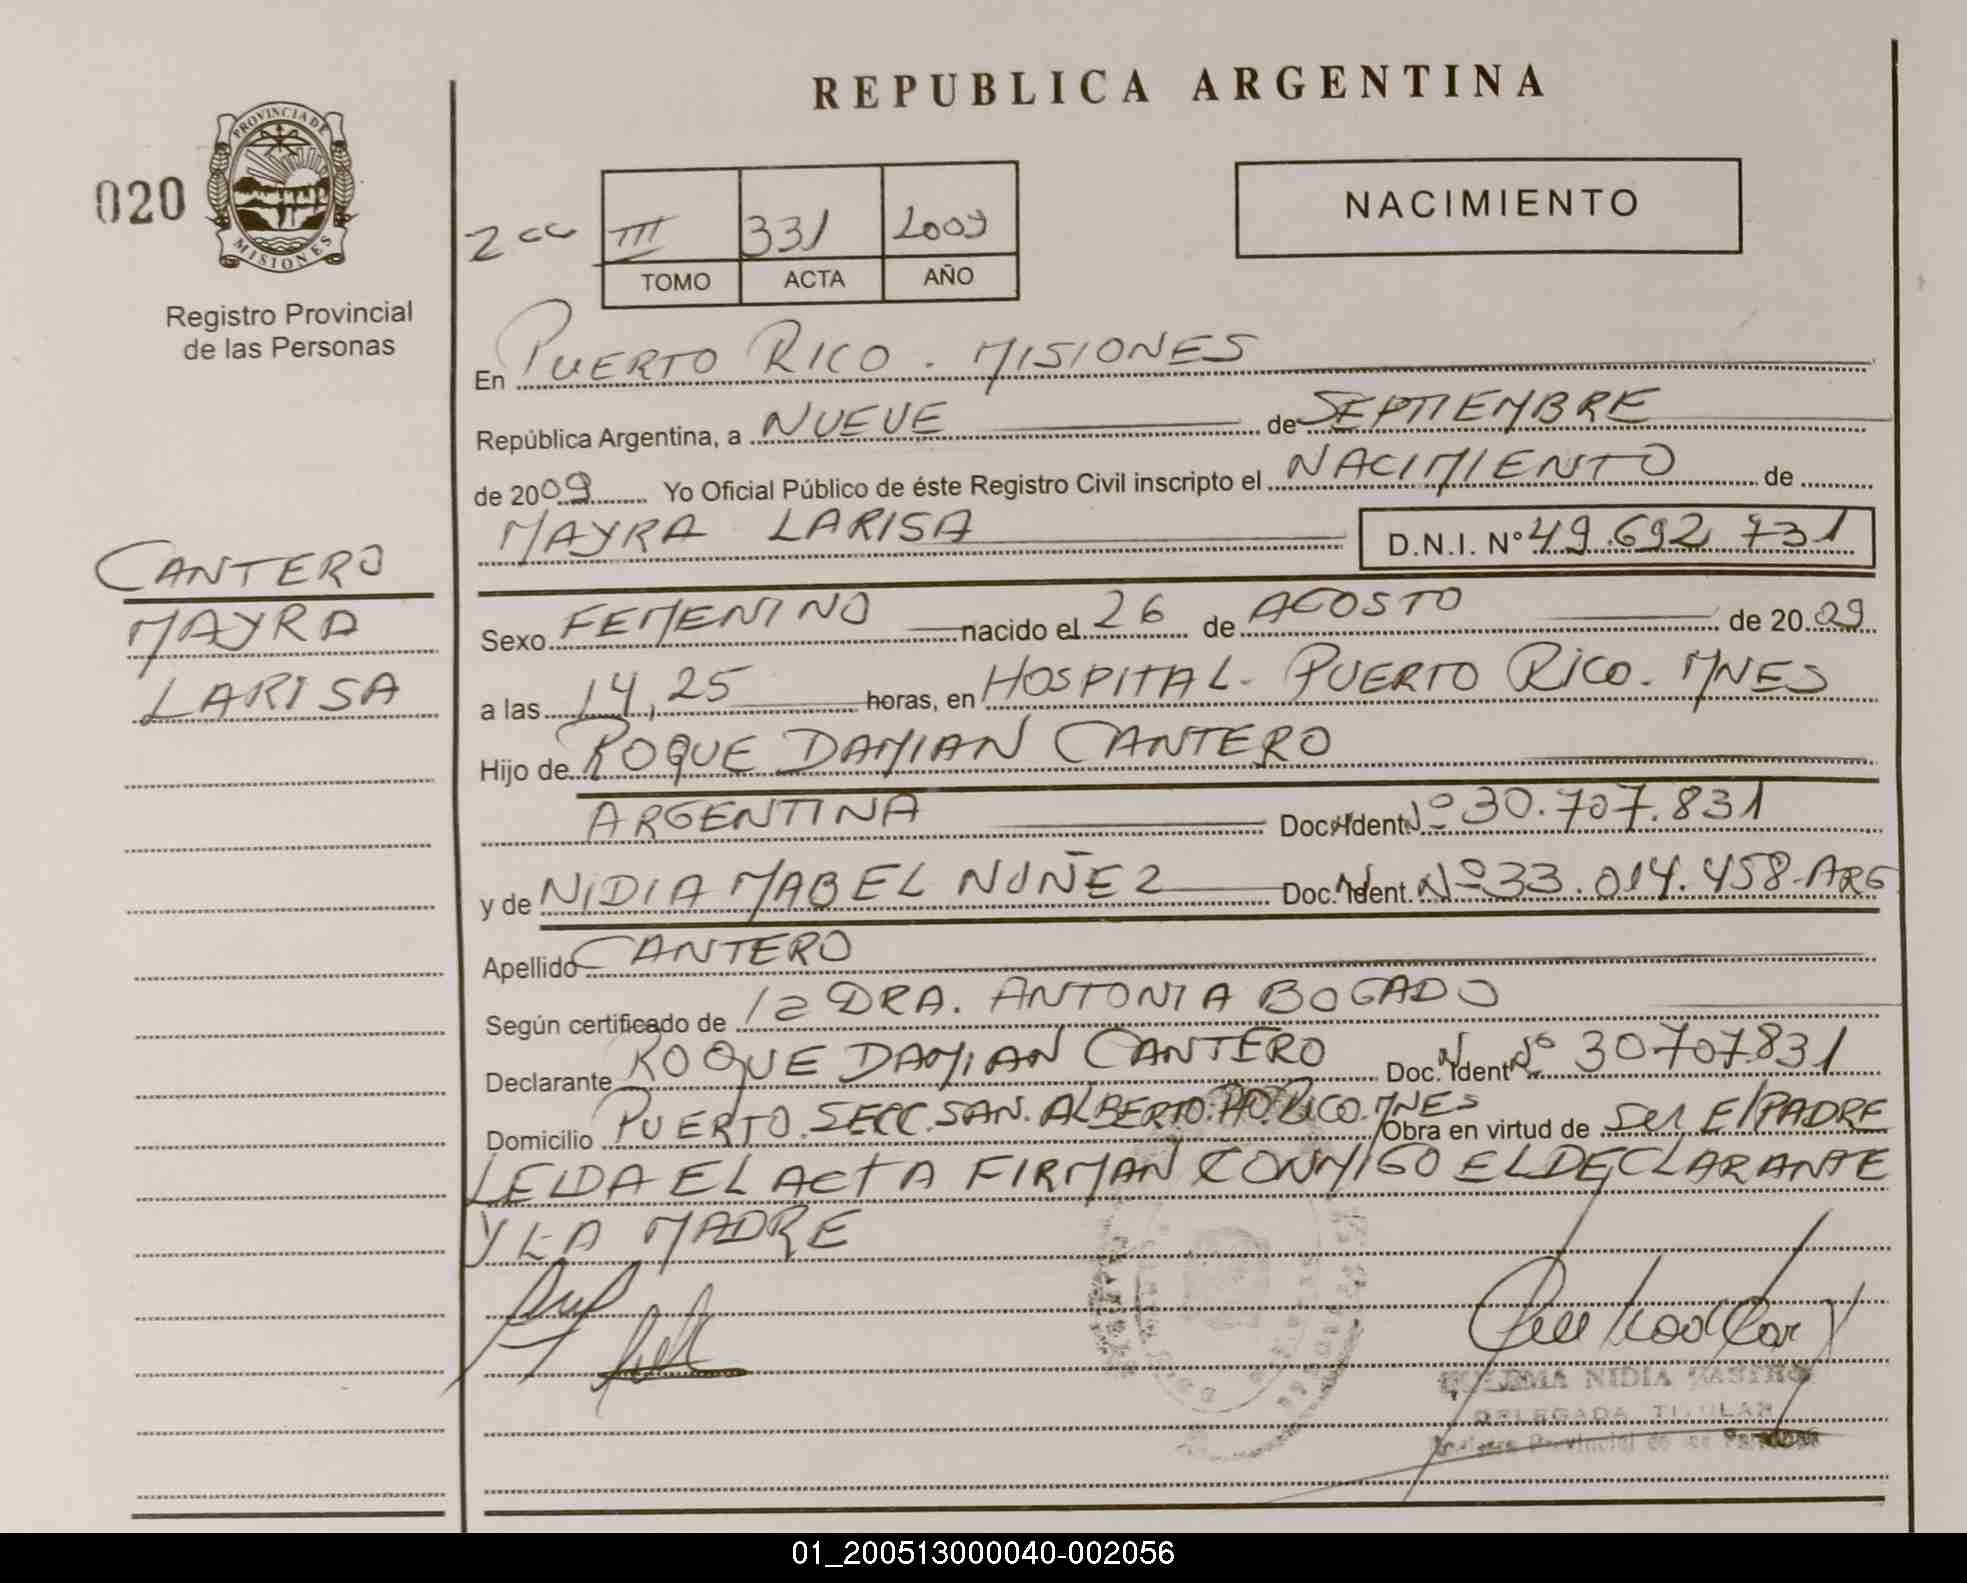 REPUBLICA ARGENTINA
020
PROVINCIA DE
MISIONES
Registro Provincial
de las Personas
NACIMIENTO
III 331 2009
TOMO ACTA AÑO
En PUERTO RICO. MISIONES
República Argentina, a NUEVE de SEPTIEMBRE
de 2009 Yo Oficial Público de éste Registro Civil inscripto el NACIMIENTO de
MAYRA LARISA D.N.I. Nº 49.692.731
CANTERO
MAYRA
LARISA
Sexo FEMENINO nacido el 26 de AGOSTO de 2009
a las 14,25 horas, en HOSPITAL. PUERTO RICO. MNES
Hijo de ROQUE DAMIAN CANTERO
ARGENTINA Doc. Ident. Nº 30.707.831
y de NIDIA MABEL NUÑEZ Doc. Ident. Nº 33.014.458-ARG
Apellido CANTERO
Según certificado de la DRA. ANTONIA BOGADO
Declarante ROQUE DAMIAN CANTERO Doc. Ident Nº 30707831
Domicilio PUERTO. SECC. SAN. ALBERTO. PTO. RICO. MNES Obra en virtud de Ser El PADRE
LEIDA EL ACTA FIRMAN CONMIGO EL DECLARANTE
Y LA MADRE
NIDIA CASTRO
DELEGADA TITULAR
Provincial de las Personas
01_200513000040-002056